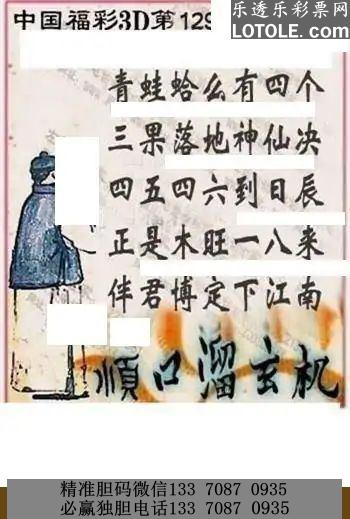 中国福彩3D第129
乐透乐彩票网
LOTOLE.COM
青蛙蛤么有四个
三果落地神仙决
四五四六到日辰
正是木旺一八来
伴君博定下江南
順口溜玄机
精准胆码微信133 7087 0935
必赢独胆电话133 7087 0935